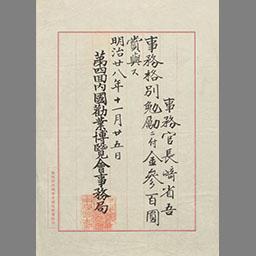 事務官長崎省吾
事務格別勉勵ニ付金参百圓
賞與ス
明治廿八年十一月廿五日
第四回内國勸業博覽會事務局